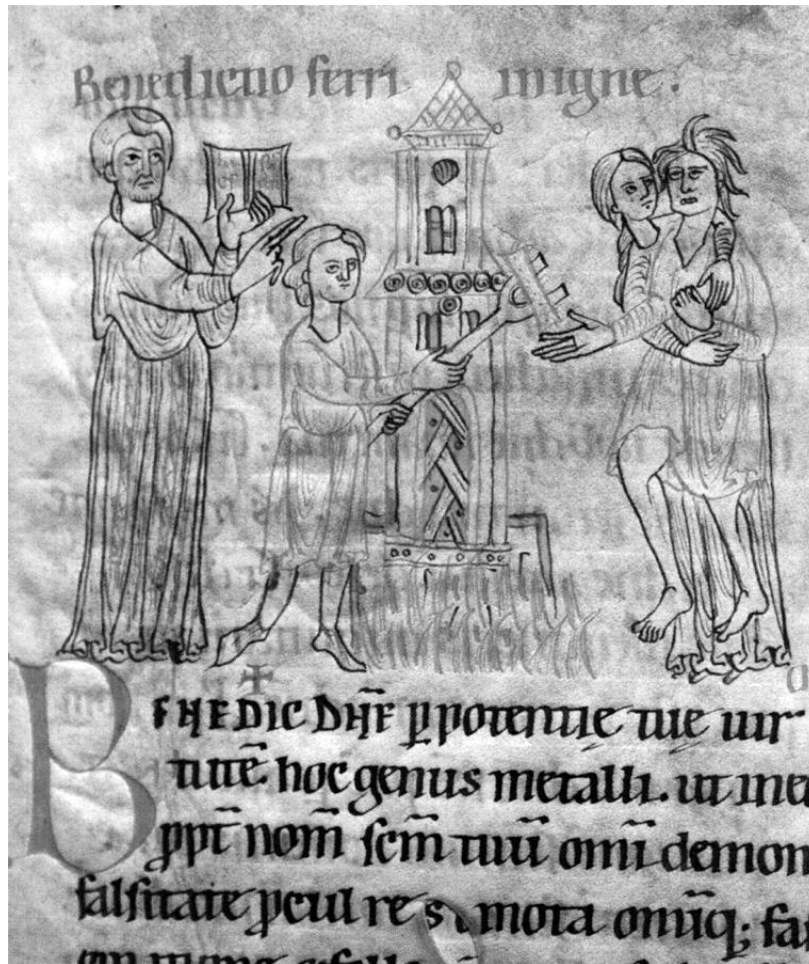 Benedictio ferri in igne.
BENEDIC DN̄E p̱ potentie tue uir
tutē. hoc genus metalli. ut in eo
ꝓpt̄ nom̄ sc̄m tuū omi demon
falsitate ꝓcul re mota omīq;